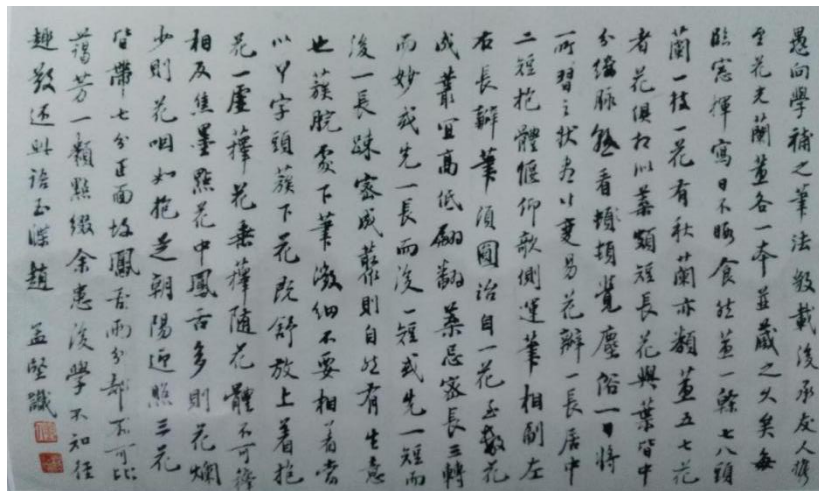 愚向學補之筆法數載後承友人携
至花光蘭蕙各一本並藏之久矣每
臨窓揮寫日不暇食然蕙一榦七八頭
蘭一枝一花有秋蘭亦類蕙五七花
者花俱相似葉類短長花與葉皆中
分綫脉熟看頻頓覺塵俗一日將
所習之狀盡以變易花瓣一長居中
二短抱體偃仰欹側運筆相副左
右長瓣筆須圓活自一花至數花
成叢宜高低翩翻葉忌密長三轉
而妙或先一長而後一短或先一短而
後一長疎密成叢則自然有生意
也簇脫處下筆微細不要相着當
以丫字頭簇下花既舒放上着抱
花一虛蘀花垂蘀隨花體不可
相反焦墨點花中鳳舌多則花爛
少則花咽如抱是朝陽迎照三花
皆帶七分正面故鳳舌兩分都不可比
蔼芳一顆點綴余患後學不知徑
趣敬述此語玉牒趙孟堅識